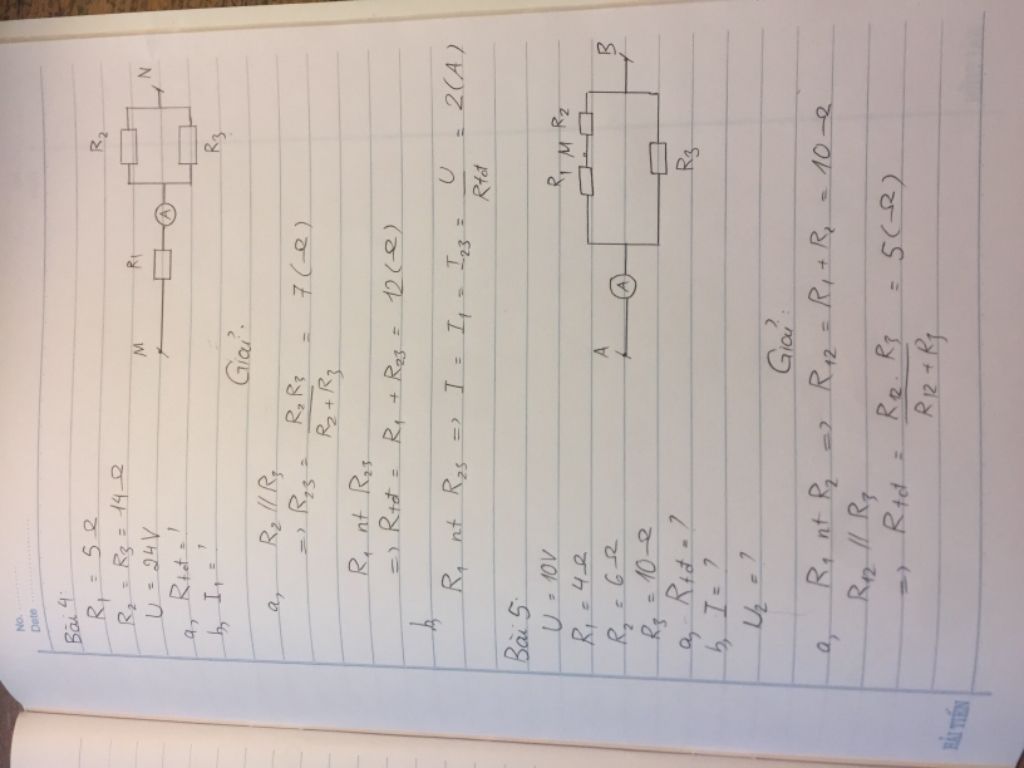 No.
Date
Bài 4:
R1 = 5 Ω
R2 = R3 = 14 Ω
U = 24V
a, Rtđ = ?
b, I1 = ?
M
R1
A
R2
R3
N
Giải:
a, R2 // R3
=> R23 = R2 R3 / R2 + R3 = 7 (Ω)
R1 nt R23
=> Rtđ = R1 + R23 = 12 (Ω)
b,
R1 nt R23 => I = I1 = I23 = U / Rtđ = 2 (A)
Bài 5:
U = 10V
R1 = 4 Ω
R2 = 6 Ω
R3 = 10 Ω
a, Rtđ = ?
b, I = ?
U2 = ?
A
A
R1 M R2
R3
B
Giải:
a, R1 nt R2 => R12 = R1 + R2 = 10 Ω
R12 // R3
=> Rtđ = R12 . R3 / R12 + R3 = 5 (Ω)
HẢI TIẾN